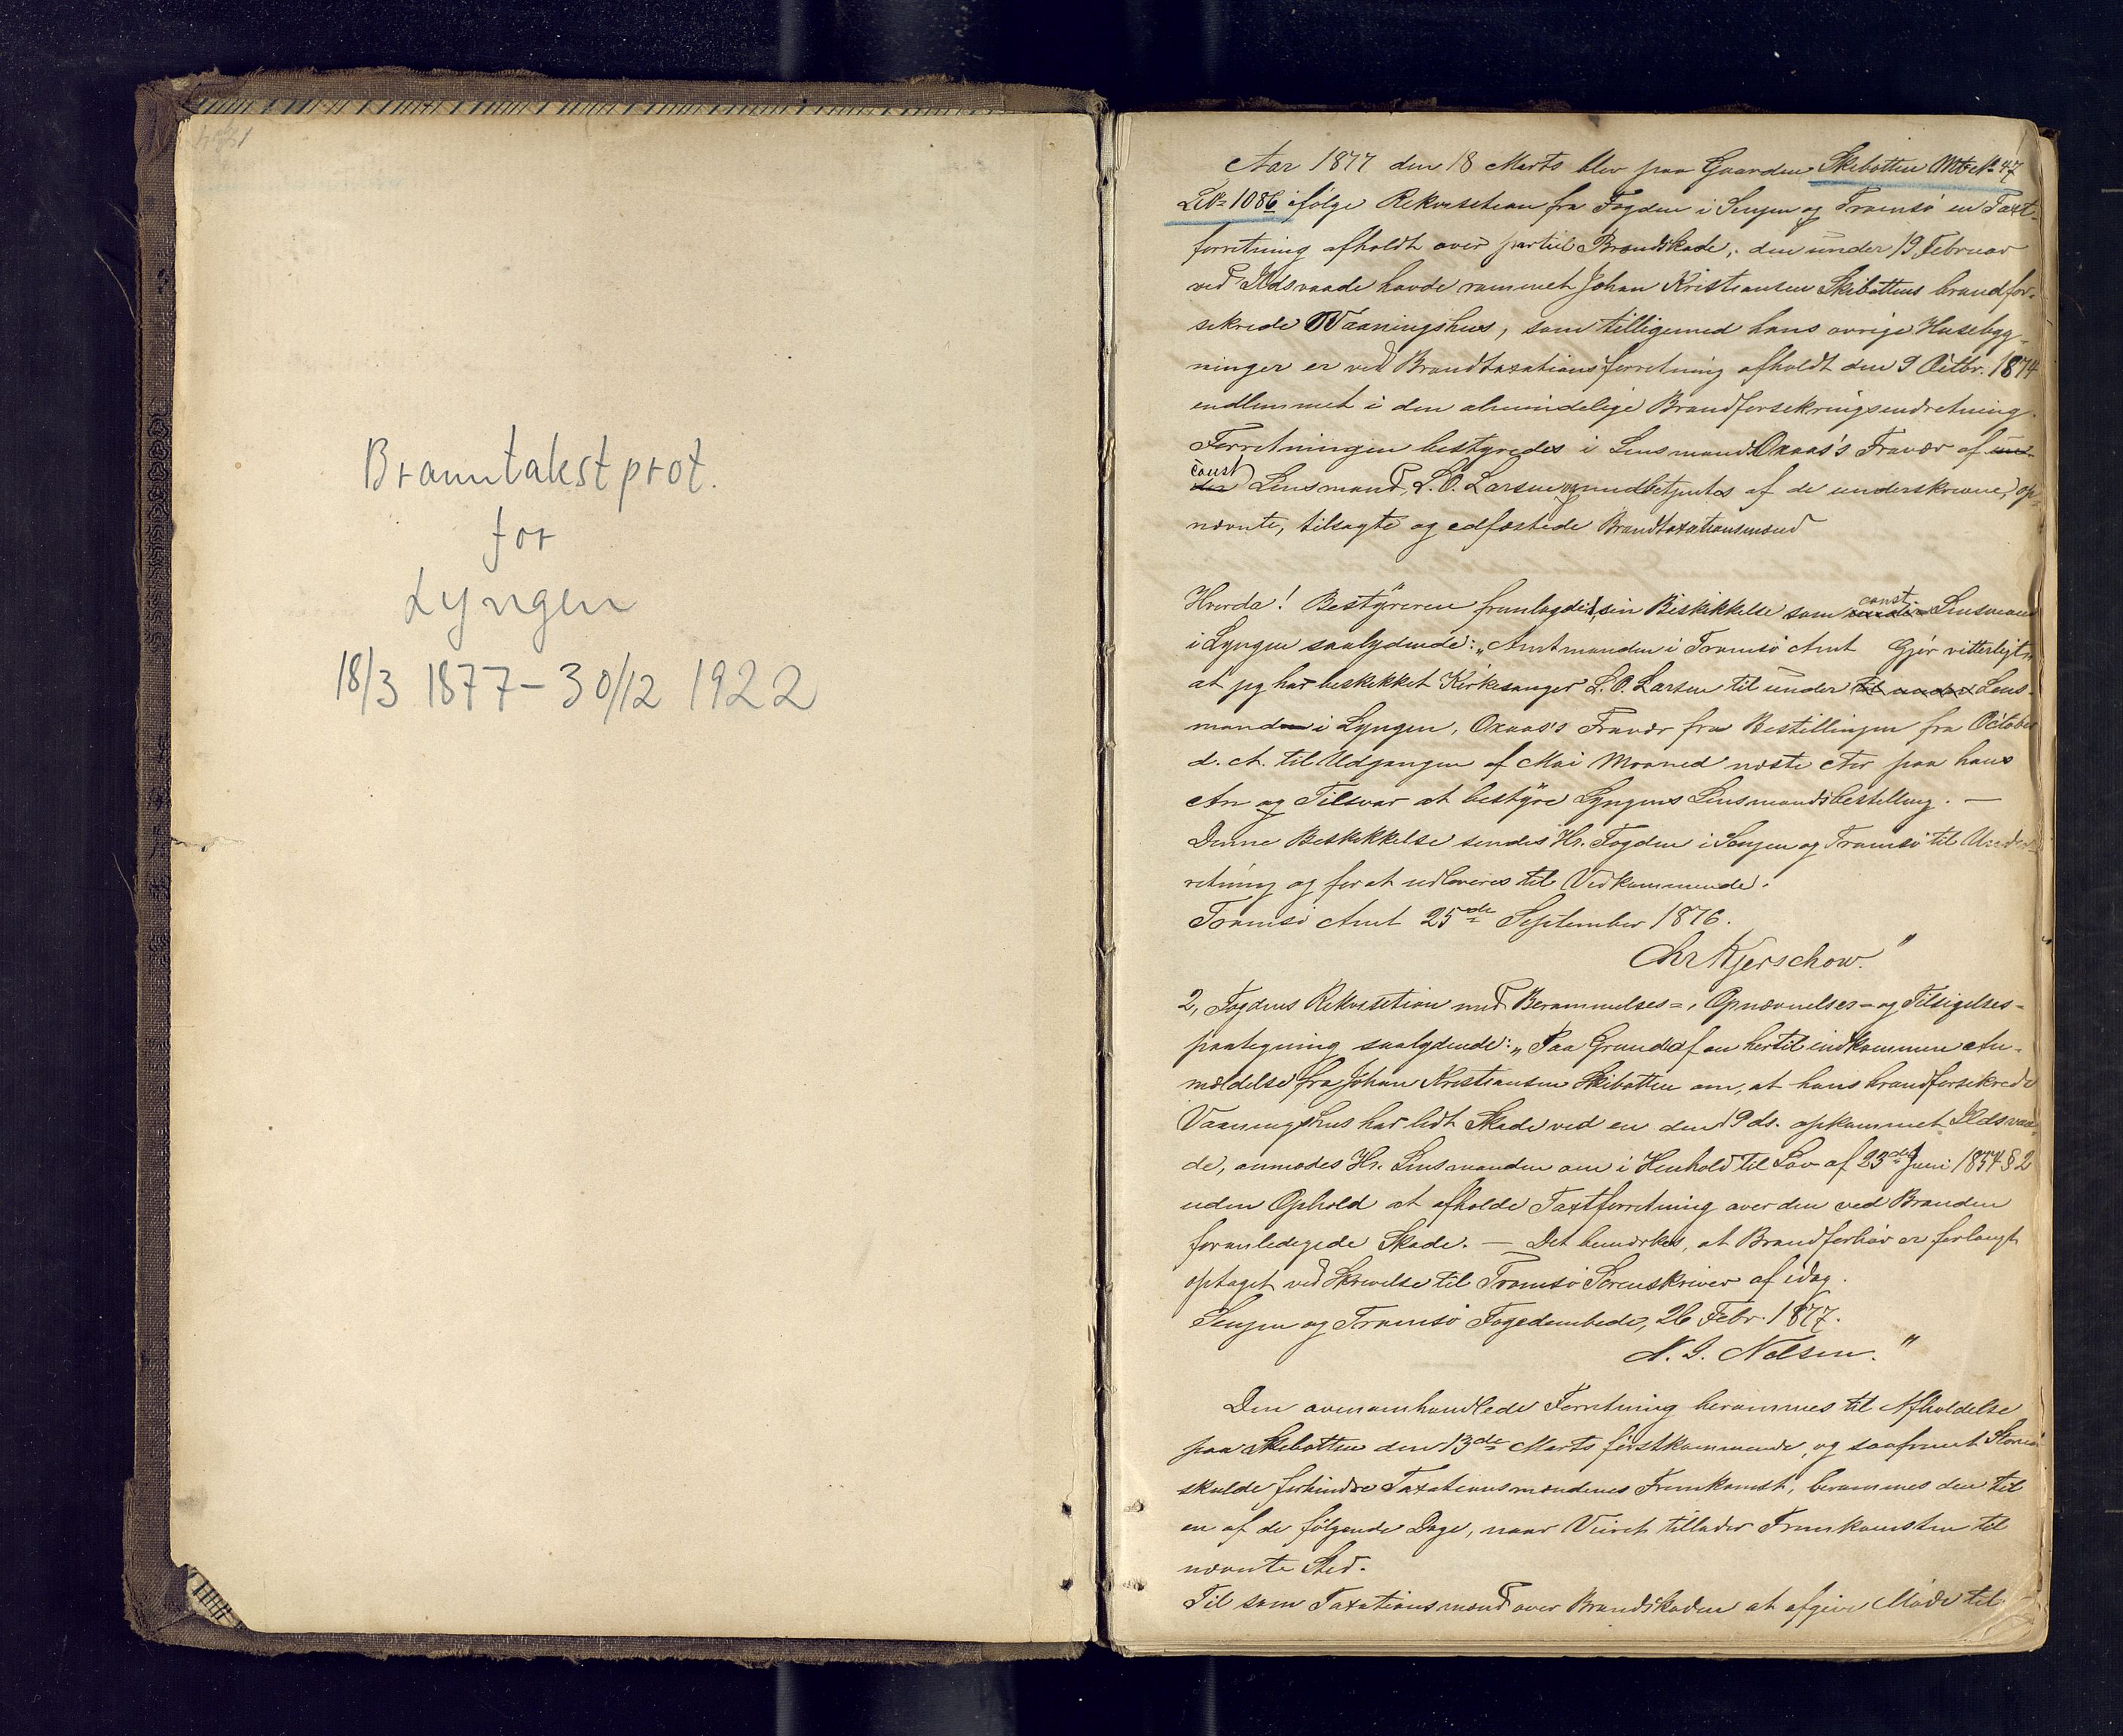 Branntakstprot.
for
Lyngen
18/3 1877 - 30/12 1922
Aar 1877 den 18 Marts blev paa Gaarden Skibotten Mtr N= 47
LN= 108b ifølge Rekvisition fra Fogden i Senjen og Tromsø en Taxt-
forretning afholdt over partiel Brandskade, den under 19 Februar
ved Ildsvaade havde rammet Johan Kristiansen Skibottens brandfor-
sikrede Vaaningshus, som tilligemed hans øvrige Husebyg-
ninger er ved Brandtaxationsforretning afholdt den 9 Octbr. 1874
indlemmet i den almindelige Brandforsikringsindretning.
Forretningen bestyredes i Lensmand Oxaas's Fravær af
const Lensmand, L. O. Larsen og medbetjentes af de underskrevne, op-
nævnte, tilsagte og edfæstede Brandtaxationsmænd
Hvorda! Bestyreren fremlagde 1, sin Beskikkelse som const Lensmand
i Lyngen saalydende: „Amtmanden i Tromsø Amt Gjør vitterligt„
at jeg har beskikket Kirkesanger L. O. Larsen til under til under Lens-
manden i Lyngen, Oxaas's Fravær fra Bestillingen fra October
d. A. til Udgangen af Mai Maaned næste Aar paa hans
An og Tilsvar at bestyre Lyngens Lensmandsbestilling. —
Denne Beskikkelse sendes Hr. Fogden i Senjen og Tromsø til Under-
retning og for at udleveres til Vedkommende.
Tromsø Amt 25de September 1876.
Chr Kjerschow."
2, Fogdens Rekvisition med Berammelses-, Opnævnelses- og Tilsigelses-
paategning saalydende: „Paa Grund af en hertil indkommen An-
mældelse fra Johan Kristiansen Skibotten om, at hans brandforsikrede
Vaaningshus har lidt Skade ved en den 19 ds. opkommet Ildsvaa-
de, anmodes Hr. Lensmanden om i Henhold til Lov af 23de Juni 1854 § 2
uden Ophold at afholde Taxtforretning over den ved Branden
foranledigede Skade. — Det bemærkes, at Brandforhør er forlangt
optaget ved Skrivelse til Tromsø Sorenskriver af idag.
Senjen og Tromsø Fogedembede, 26 Febr. 1877.
N. J. Nelsen."
Den ovenomhandlede Forretning berammes til Afholdelse
paa Skibotten den 13de Marts førstkommende, og saafremt Storm
skulde forhindre Taxationsmændenes Fremkomst, berammes den til
en af de følgende Dage, naar Veiret tillader Fremkomsten til
nævnte Sted.
Til som Taxationsmænd over Brandskaden at afgive Møde til